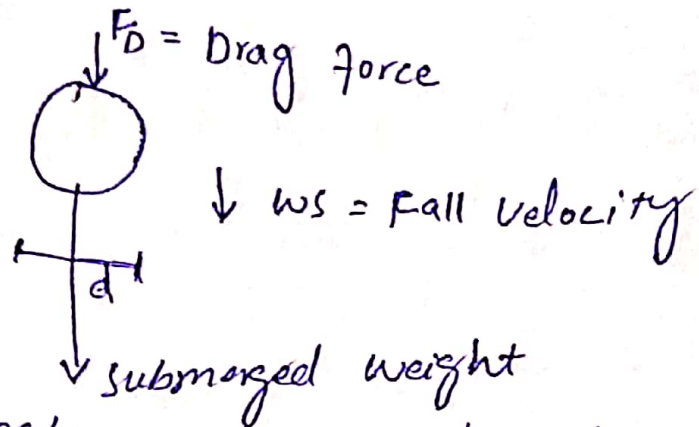 F_D = Drag force
↓ ws = Fall velocity
d
submerged weight